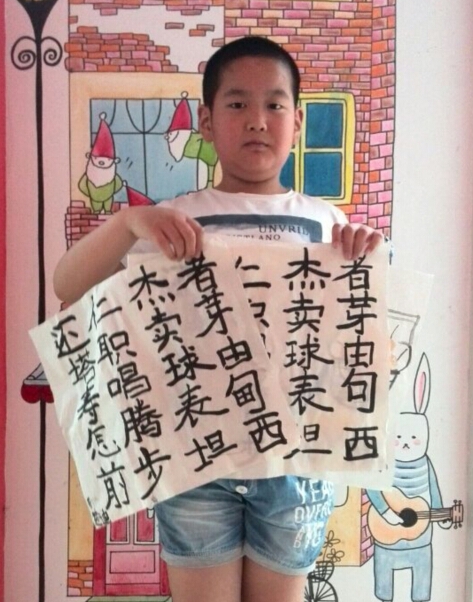 着芽由句西
杰卖球表坦
仁
着芽由甸西
杰卖球表坦
仁职唱腾步
还塔寺怎前
UNVRID